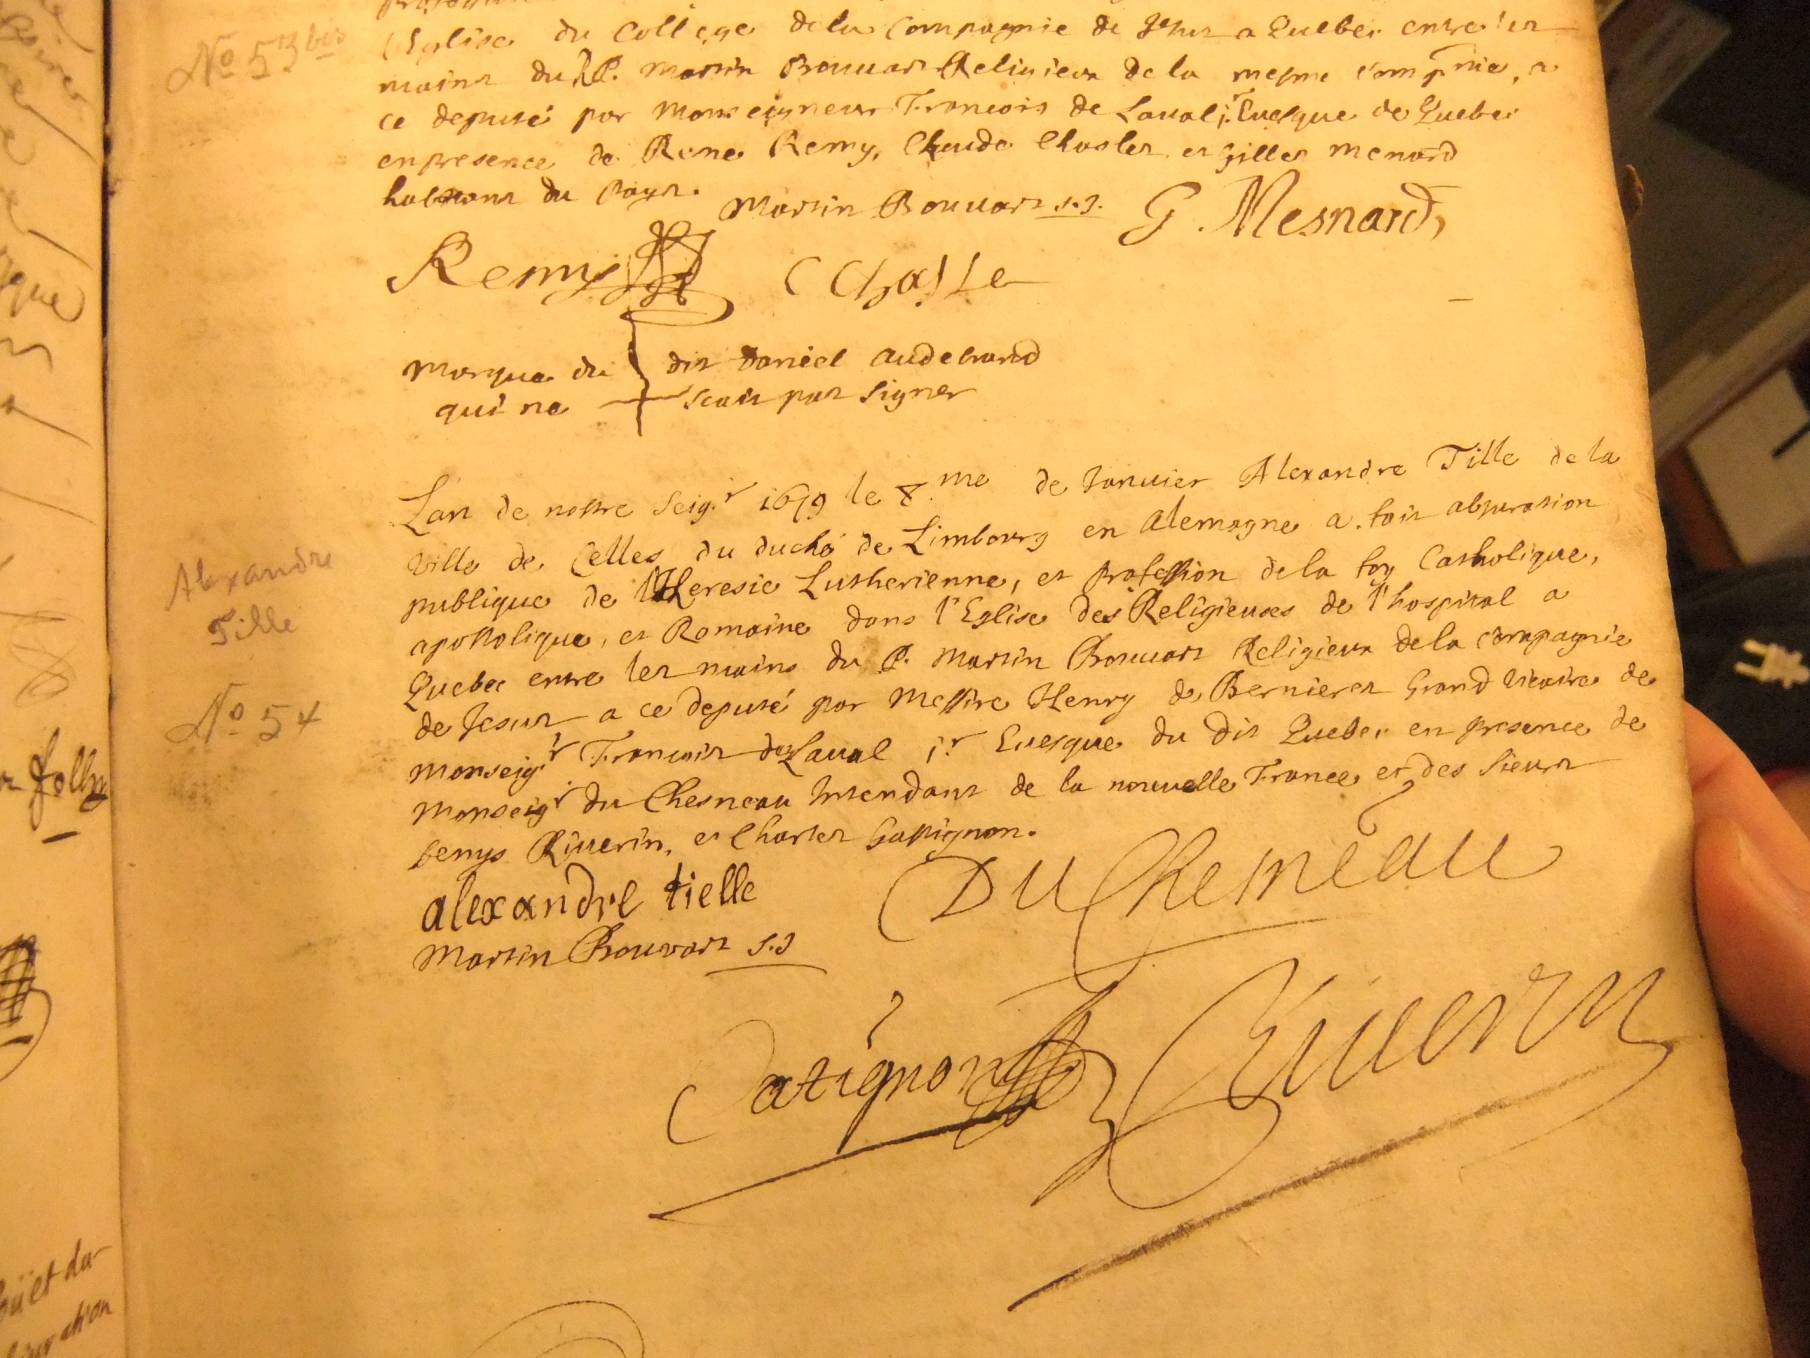 No 53 bis
l'Eglise du College de la Compagnie de Jhus a Quebec entre les
mains du R.P. Martin Bouuart Religieux de la mesme Compnie, a
ce deputé par Monseigneur Francois de Laual j.r Euesque de Quebec
en presence de Rene Remy, Claude Chasles et Gilles Menard
habitans du Pays. Martin Bouuart s.j. G. Mesnard,
Remy C Chasle
marque du dit Daniel Audebrand
qui ne scait pas signer
L'an de nostre Seig.r 1679 le 8.me de Januier Alexandre Tille de la
ville de Celles du duché de Limbourg en Alemagne a fait abjuration
publique de l'Heresie Lutherienne, et profession de la foy Catholique,
apostolique, et Romaine dans l'Eglise des Religieuses de l'hospital a
Quebec entre les mains du P. Martin Bouuart Religieux de la Compagnie
de Jesus a ce deputé par Messire Henry de Bernieres Grand Vicaire de
Monseig.r Francois de Laual j.r Euesque du dit Quebec en presence de
Monseig.r du Chesneau Intendant de la nouuelle France et des Sieurs
Denys Riuerin, et Charles Gattignon.
Alexandre
Tille
No 54
alexandre tielle
DuChesneau
Martin Bouvart s.j
Catignon
Riuerin